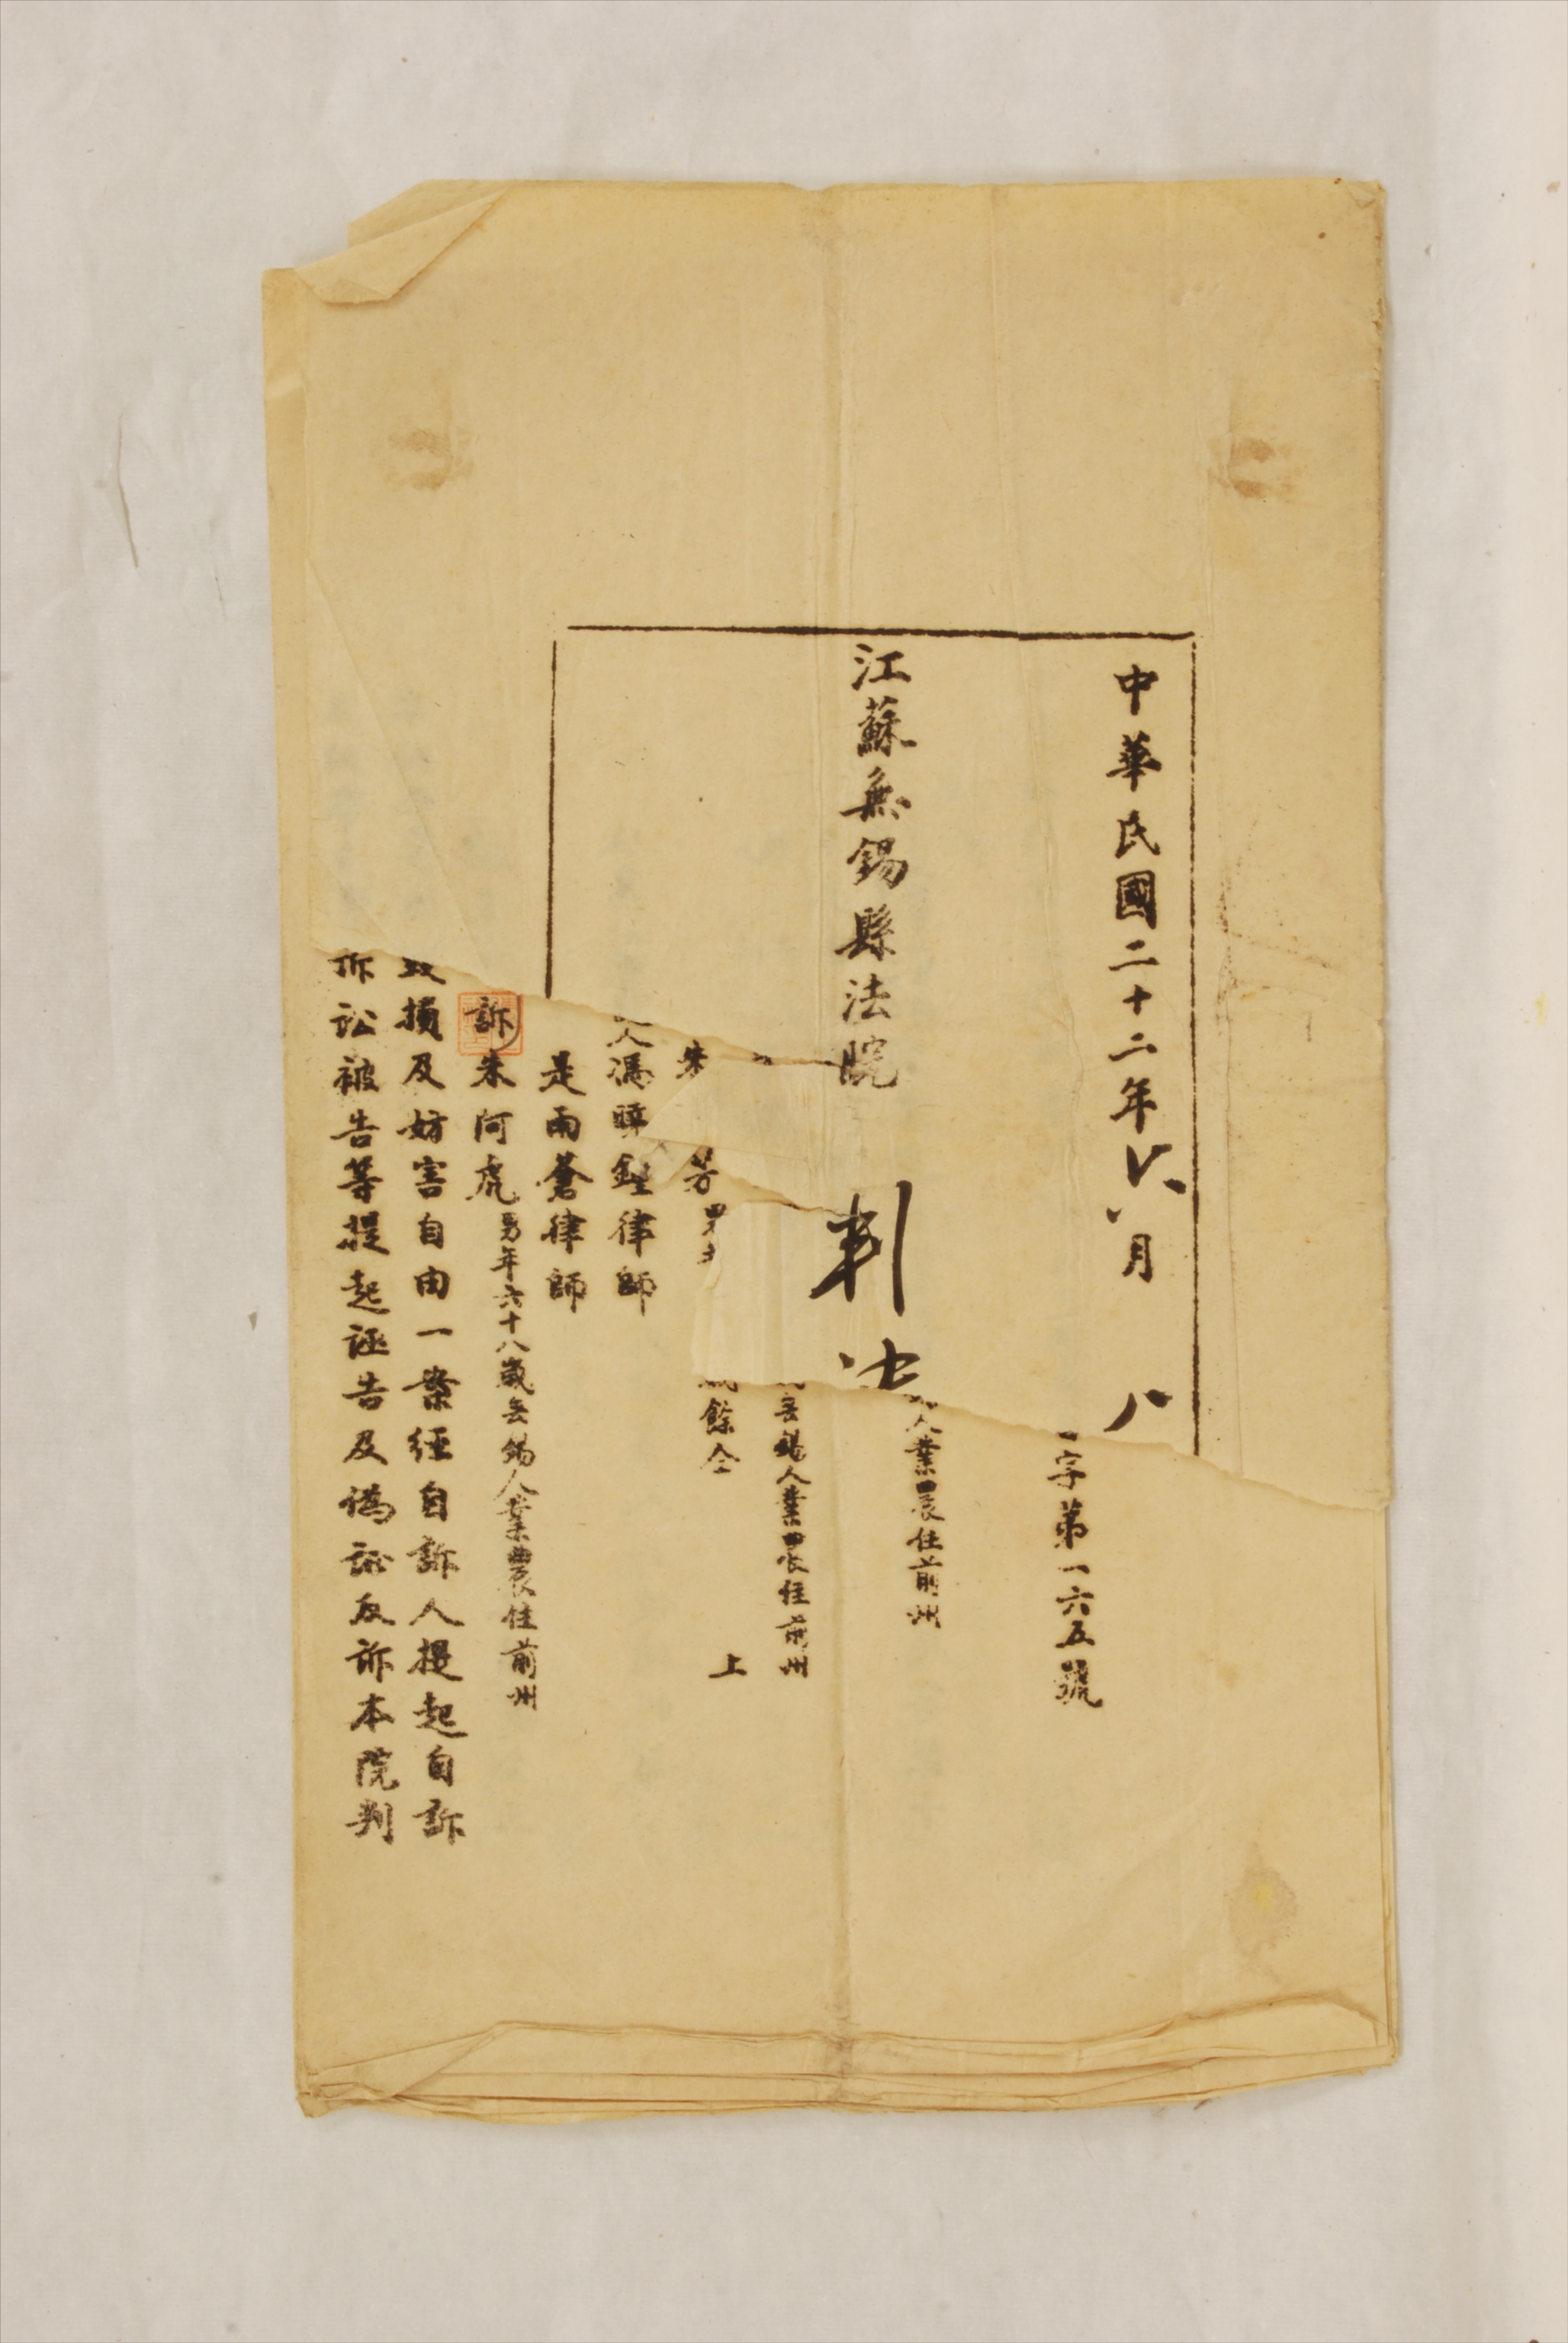 中華民國二十二年六月 八
江蘇無錫縣法院 判決
字第一六五號
人業農住前州
無錫人業農住前州
朱 芳 餘仝 上
人馮 律師
是雨蒼律師
訴 朱阿虎男年六十八歲無錫人業農住前州
損及妨害自由一案經自訴人提起自訴
訴訟被告等提起誣告及偽証反訴本院判